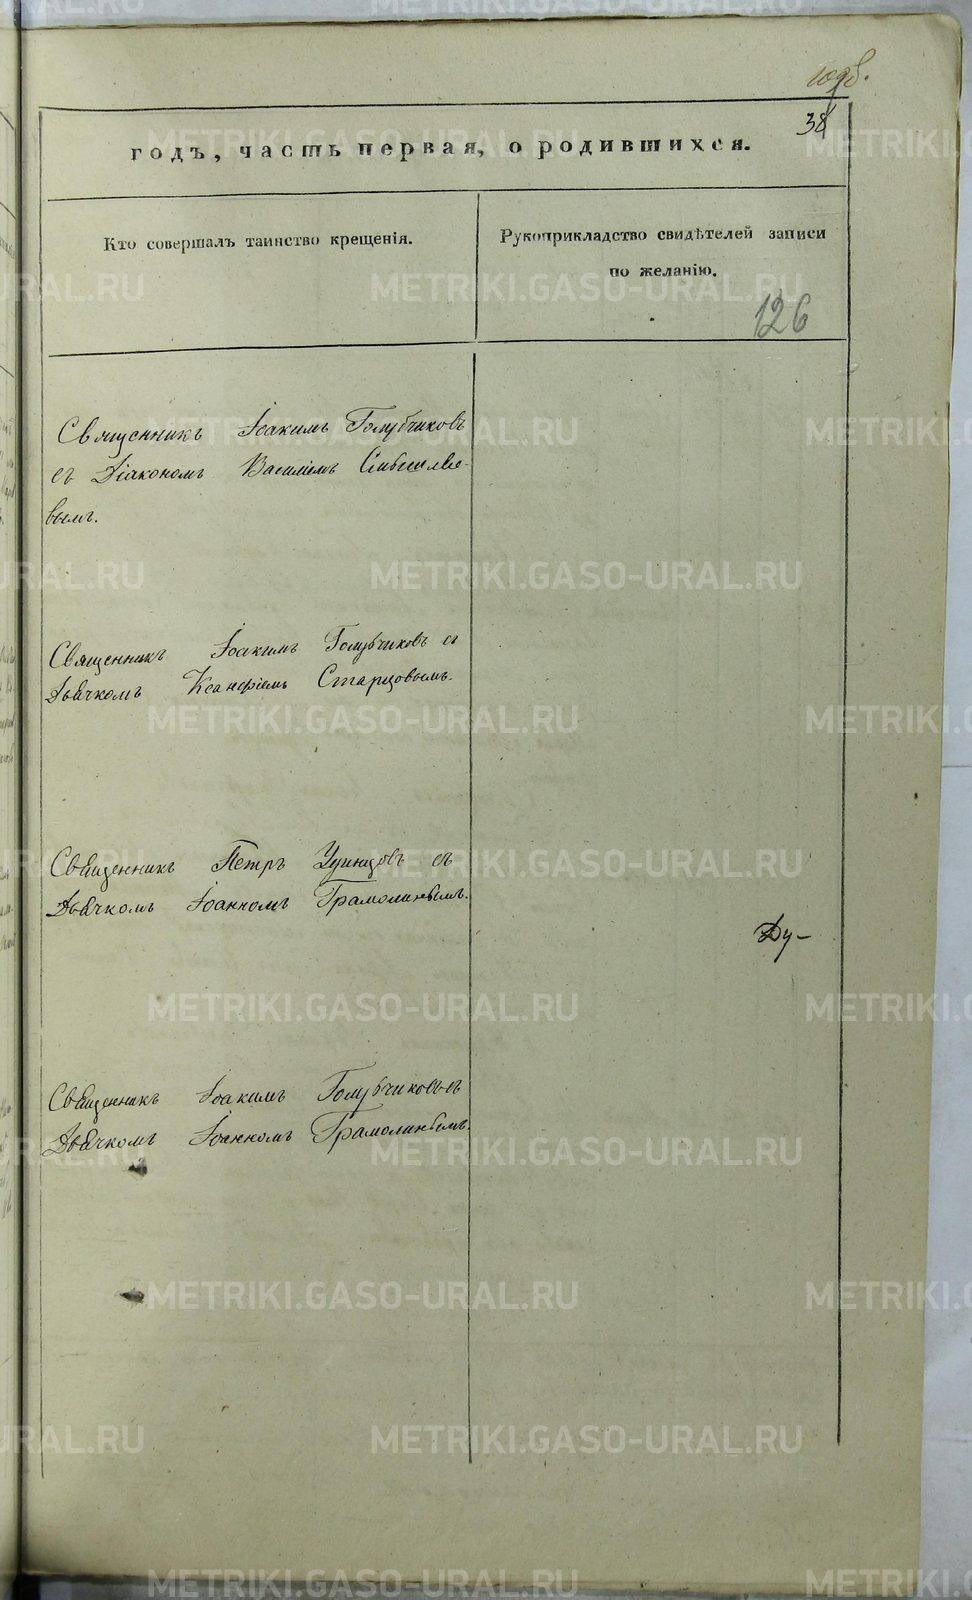 38
годъ, часть первая, о родившихся.
Кто совершалъ таинство крещенія.
Рукоприкладство свидѣтелей записи
по желанію.
126
Священникъ Іоакимъ Голубчиковъ
съ Діакономъ Василіемъ
вымъ.
Священникъ Іоакимъ Голубчиковъ съ
Дьячкомъ Ксанфіемъ Старцовымъ.
Священникъ Петръ съ
Дьячкомъ Іоанномъ Грамолинымъ.
Ду-
Священникъ Іоакимъ Голубчиковъ съ
Дьячкомъ Іоанномъ Грамолинымъ.
METRIKI.GASO-URAL.RU